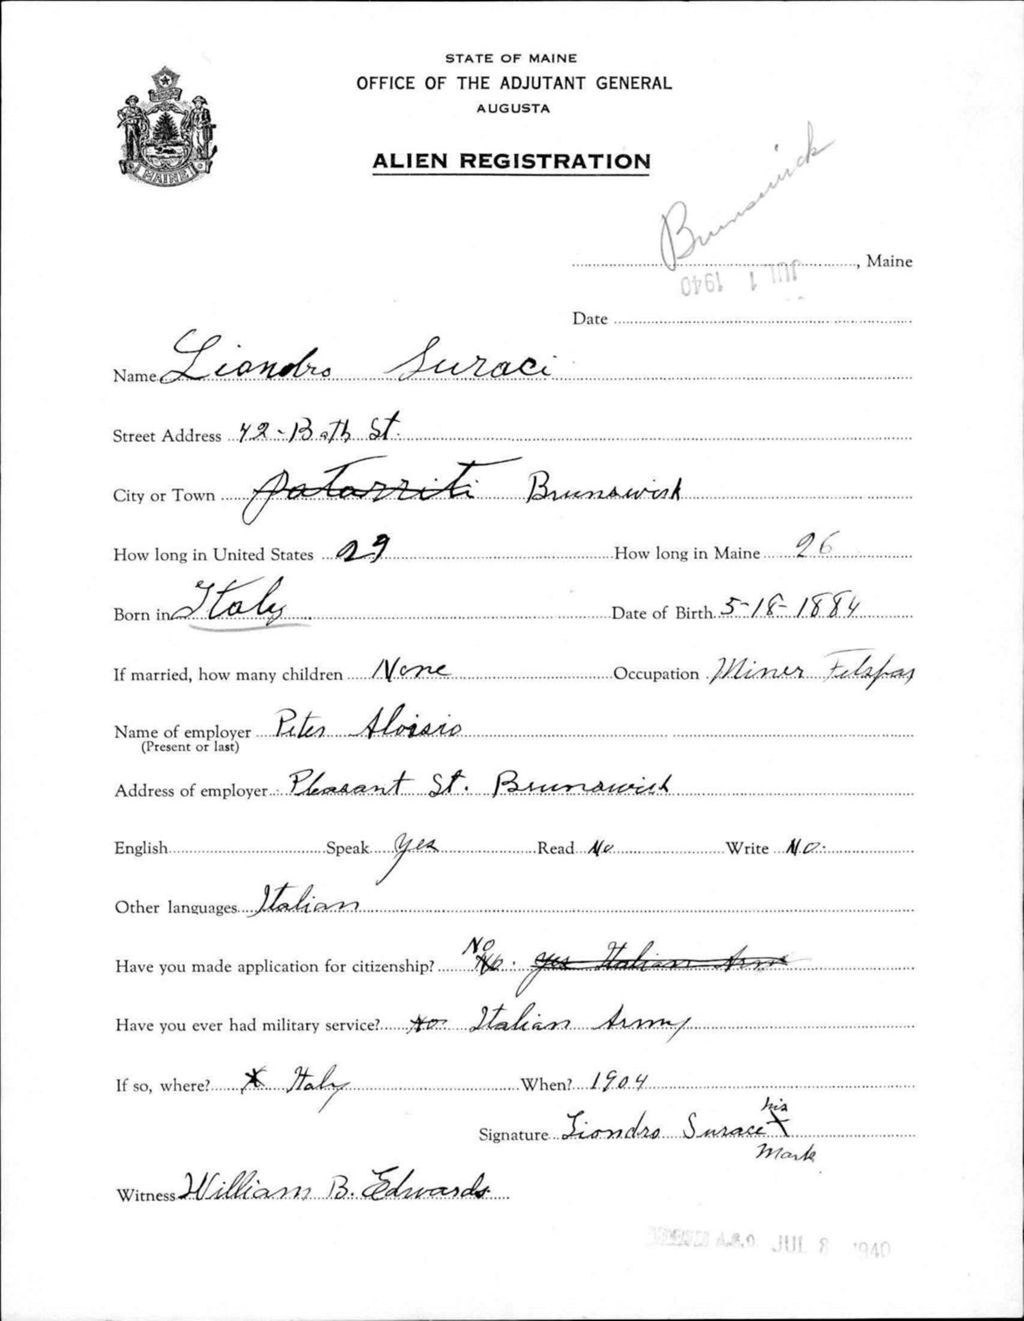 STATE OF MAINE
OFFICE OF THE ADJUTANT GENERAL
AUGUSTA
MAINE
ALIEN REGISTRATION
Brunswick, Maine
JUL 1 1940
Date
Name Liandro Suraci
Street Address 42 - Bath St.
City or Town patarriti Brunswick
How long in United States 29 How long in Maine 26
Born in Italy Date of Birth 5-18-1884
If married, how many children None Occupation Miner Felspar
Name of employer Peter Aloisio
(Present or last)
Address of employer Pleasant St. Brunswick
English Speak Yes Read No Write No.
Other languages Italian
Have you made application for citizenship? No No. Yes Italian Arm
Have you ever had military service? no Italian Army
If so, where? Italy When? 1904
Signature Liondro Surace his X
Mark
Witness William B. Edwards
RECEIVED A.G.O. JUL 8 1940